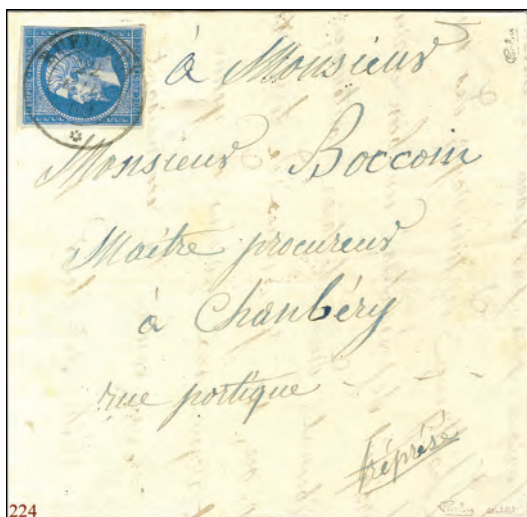 à Monsieur
Monsieur Boccoin
Maitre procureur
à Chanbéry
rue portique
224